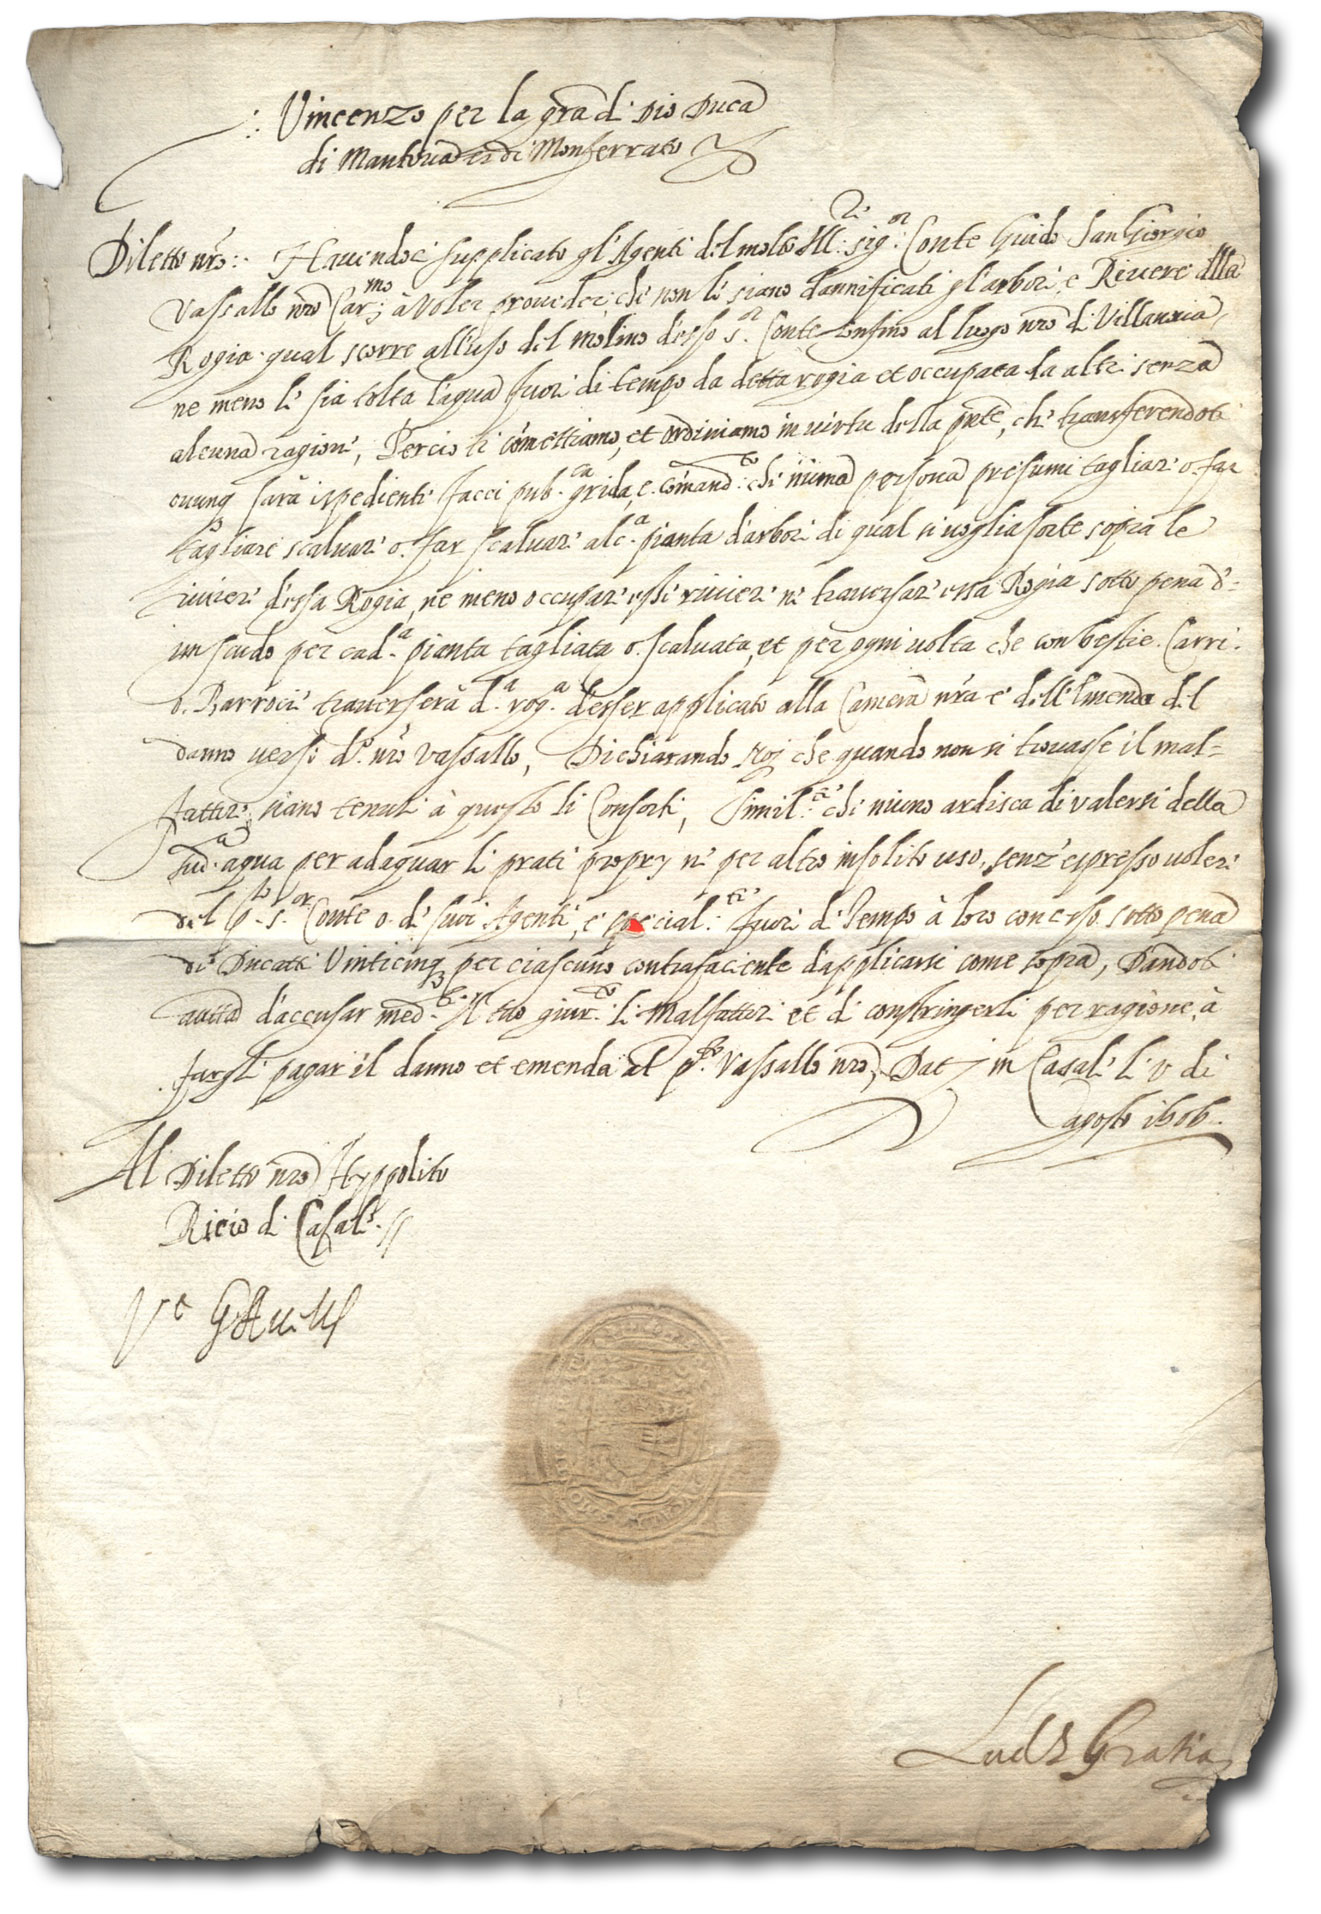 Vincenzo per la gra di Dio Duca
di Mantova et di Monferrato
Diletto nro: Havendoci supplicato gl'Agenti del molto Ill.re sig.or Conte Guido San Giorgio
Vassallo nro Car.mo à voler proveder, che non li siano dannificati gl'arbori, e Rivere della
Rogia qual scorre all'uso del molino d'esso S.or Conte insino al luogo nro di Villanova,
ne meno li sia tolta l'aqua fuori di tempo da detta rogia et occupata da altri senza
alcuna ragione, Percio ti comettiamo, et ordiniamo in virtu della pnte, che transferendoti
ovunq sarà ispediente facci pub.ca grida, e comand.to che niuna persona presumi tagliare o far
tagliare scalvare o far scalvare alc.a pianta d'arbori di qual si voglia sorte sopra le
rivere d'essa Rogia, ne meno occupare esse rivere ne traversare essa Rogia sotto pena d'
un scudo per cad.a pianta tagliata o scalvata, et per ogni volta che con bestie Carri
o Barroci traverserà d.a rog.a d'esser applicato alla Camera nra e dell'emenda del
danno verso d.o nro Vassallo, Dichiarando Noi che quando non si trovasse il mal=
fattore, siano tenuti à questo li Consorti, Simil.te che niuno ardisca di valersi della
sud.a aqua per adaquar li prati proprij ne per altro insolito uso, senz'espresso volere
del p.to S.or Conte o di suoi Agenti, e special.te fuori di tempo à loro concesso sotto pena
di Ducatti Vinticinq per ciascuno contrafaciente d'applicarsi come sopra, Dandoti
autta d'accusar med.te il tuo giur.to li Malfattori et di constringerli per ragione à
fargli pagar il danno et emenda al p.to Vassallo nro, Dat in Casale li v di
agosto 1606.
Al Diletto nro Hyppolito
Ricio di Casale
V.a
Lud.s Gratia